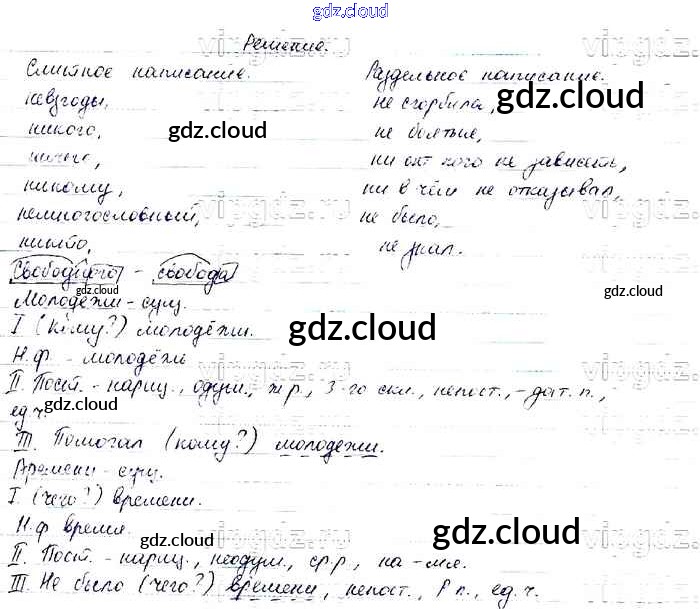 gdz.cloud
Решение.
Слитное написание.
невзгоды,
никого,
ничего,
никому,
немногословный,
никто,
Раздельное написание.
не сгорбила,
не болтые,
ни от кого не зависеть,
ни в чём не отказывал,
не было,
не знал.
gdz.cloud
gdz.cloud
Свободного - свобода
gdz.cloud
gdz.cloud
Молодёжи - сущ.
I (кому?) молодёжи.
gdz.cloud
Н.ф. - молодёжь
II. Пост. - нариц., одуш., ж.р., 3-го скл., непост., - дат. п.,
ед.ч.
gdz.cloud
III. Помогал (кому?) молодежи.
Времени - сущ.
I. (чего?) времени.
Н.ф время.
gdz.cloud
gdz.cloud
II. Пост. - нариц., неодуш., ср.р, на -мя.
III. Не было (чего?) времени, непост., Р п., ед.ч.